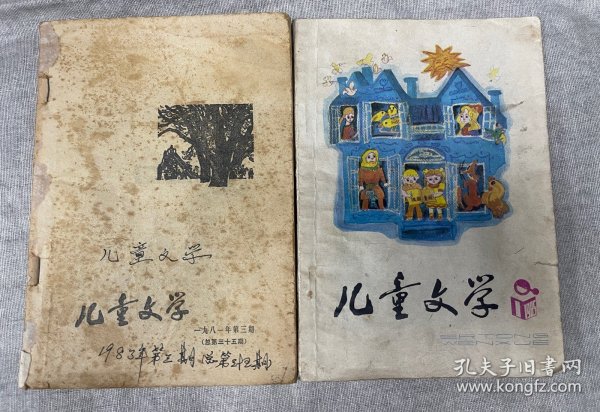 儿童文学
儿童文学
一九八一年第三期
(总第三十五期)
1983年第三期 总第三十五期
儿童文学
ERTONG
WENXUE
孔夫子旧书网
www.kongfz.com